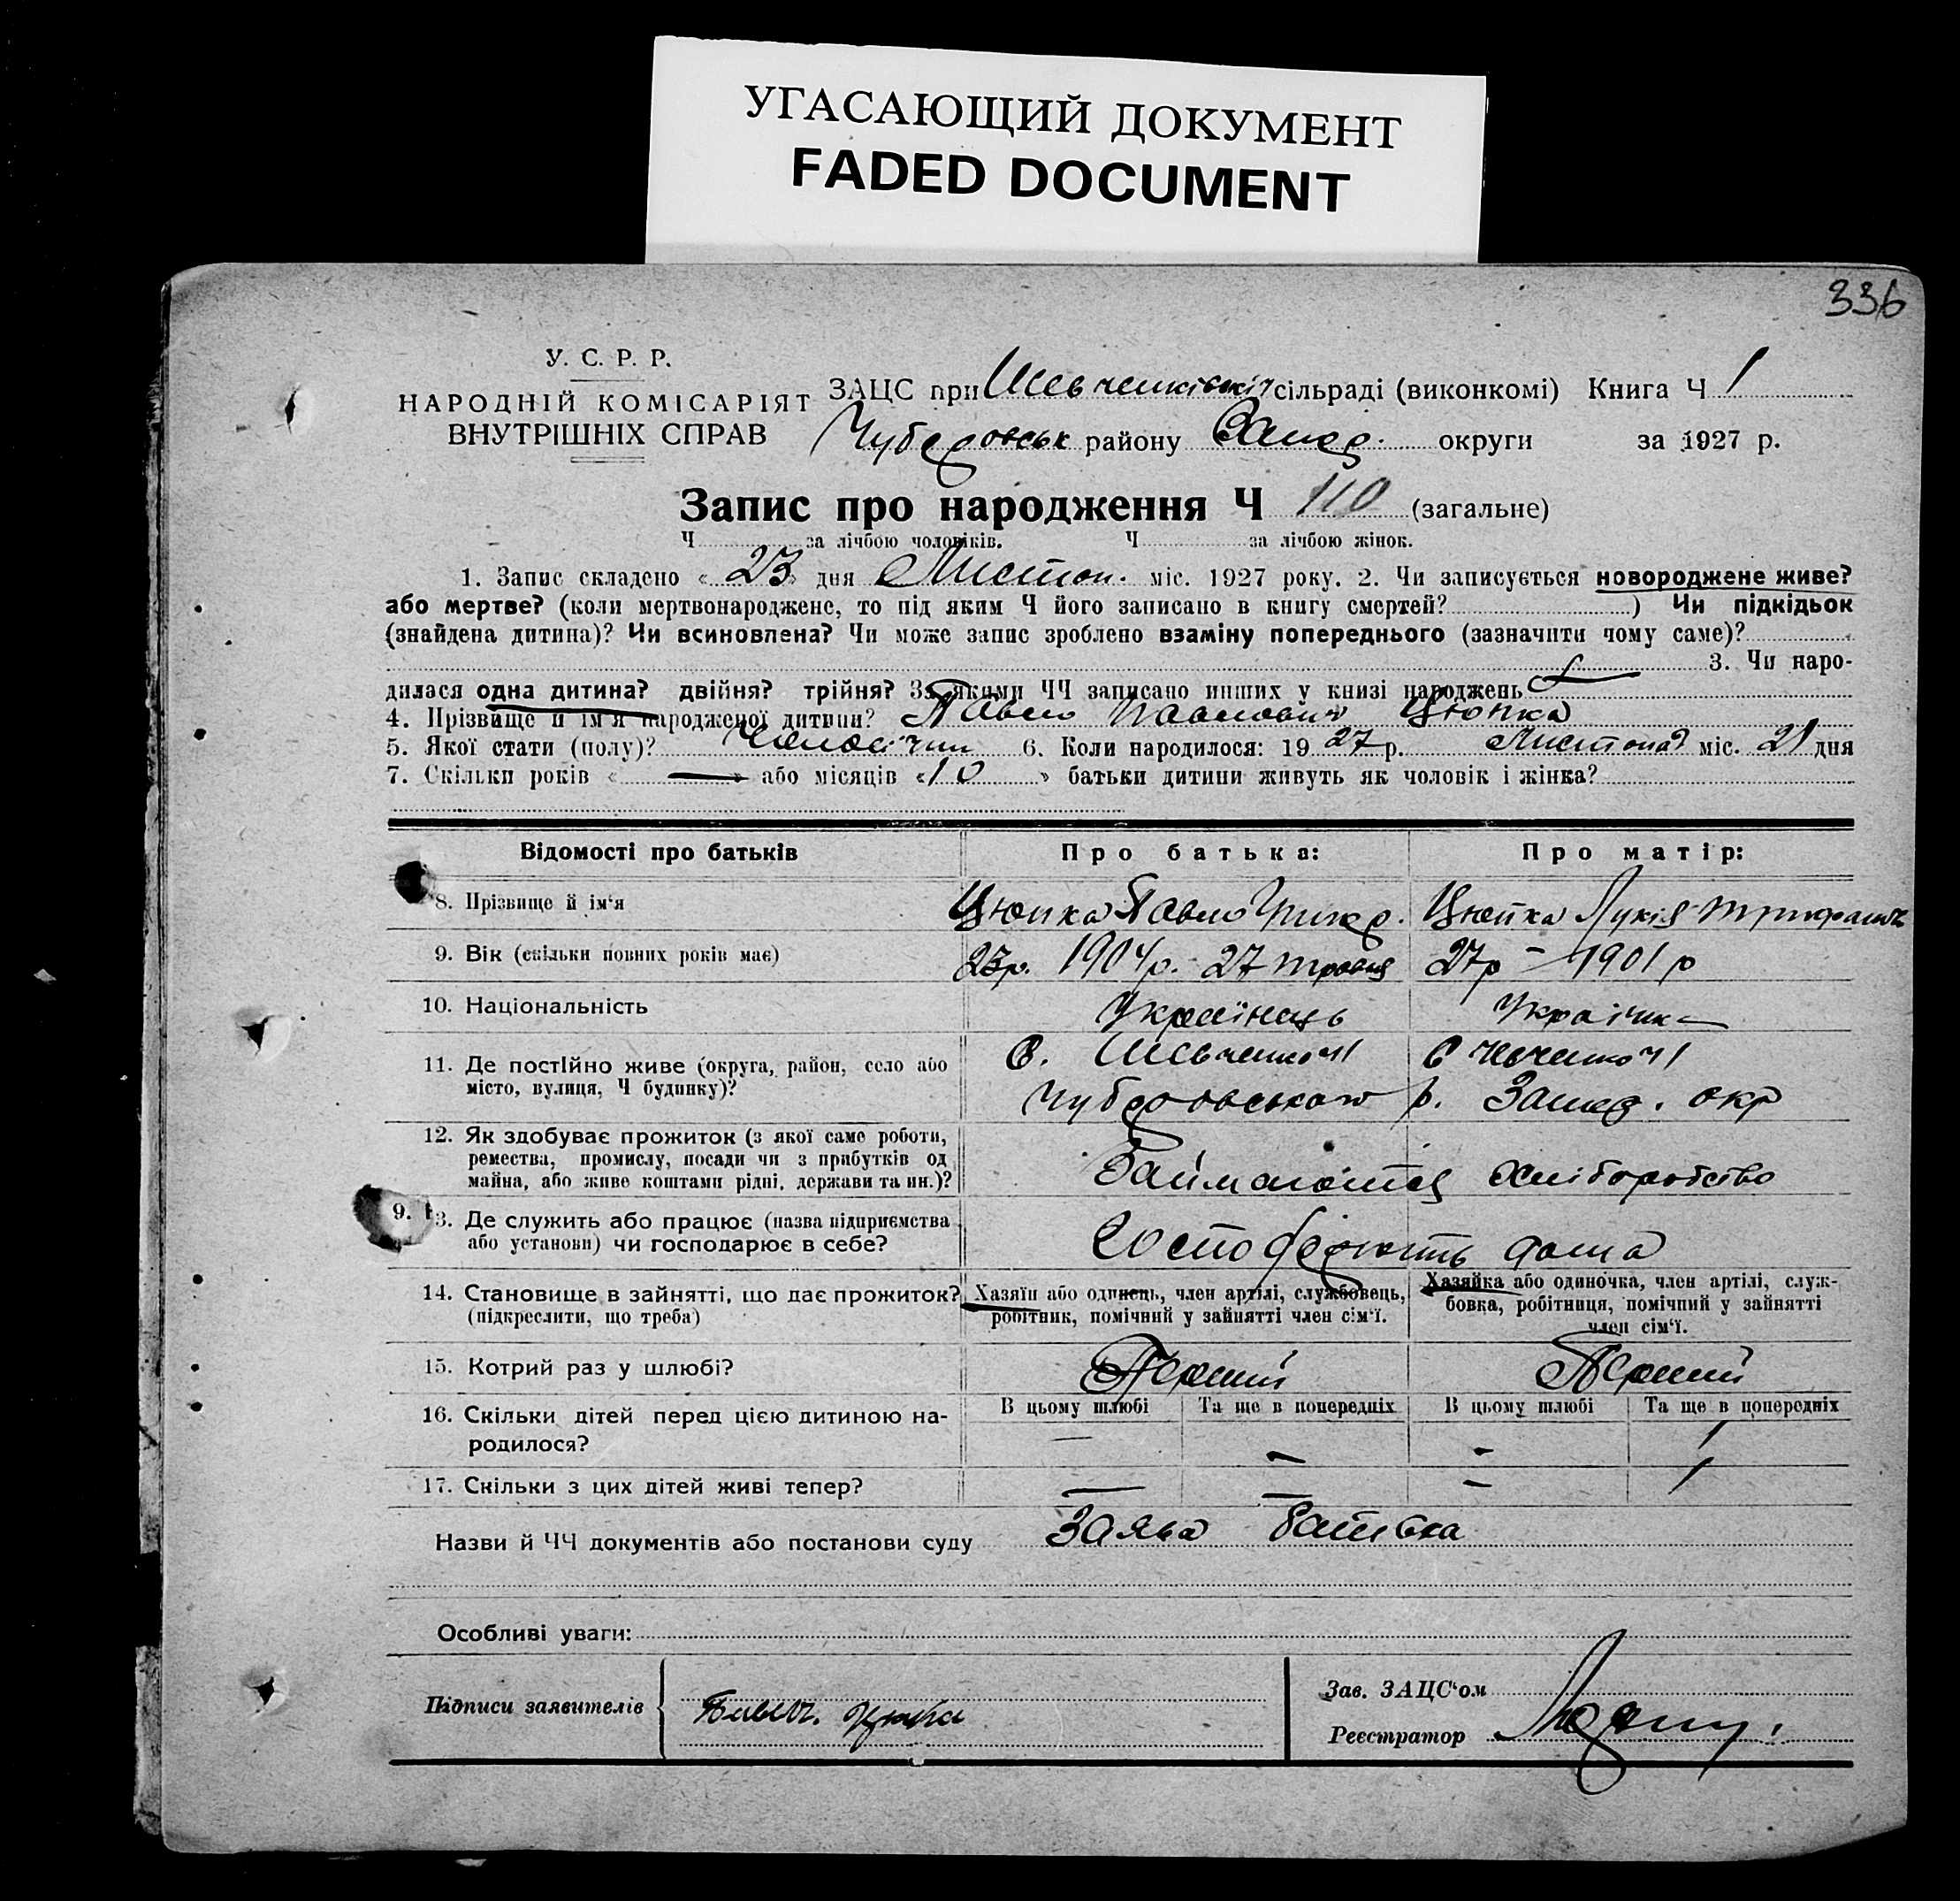 УГАСАЮЩИЙ ДОКУМЕНТ
FADED DOCUMENT
336
У. С. Р. Р.
НАРОДНІЙ КОМІСАРІЯТ
ВНУТРІШНІХ СПРАВ
ЗАЦС при Шевченківській сільраді (виконкомі) Книга Ч 1
Чубарівськ району Запор. округи за 1927 р.
Запис про народження Ч 110 (загальне)
Ч за лічбою чоловіків. Ч за лічбою жінок.
1. Запис складено « 23 » дня Листоп. міс. 1927 року. 2. Чи записується новороджене живе?
або мертве? (коли мертвонароджене, то під яким Ч його записано в книгу смертей? ) Чи підкідьок
(знайдена дитина)? Чи всиновлена? Чи може запис зроблено взаміну попереднього (зазначити чому саме)?
3. Чи наро-
дилася одна дитина? двійня? трійня? За якими ЧЧ записано инших у книзі народжень
4. Прізвище й ім'я народженої дитини? Павло Павлович Цюпка
5. Якої стати (полу)? Чоловічии 6. Коли народилося: 19 27 р. Листопад міс. 21 дня
7. Скільки років « — » або місяців « 10 » батьки дитини живуть як чоловік і жінка?
Відомості про батьків Про батька: Про матір:
8. Прізвище й ім'я Цюпка Павло Григор. Цюпка Лукія
9. Вік (скільки повних років має) 23р. 1904р. 27 травня 27р – 1901 р
10. Національність Українець Украінк
11. Де постійно живе (округа, район, село або С. Шевченкові с
місто, вулиця, Ч будинку)? р. Запор. окр
12. Як здобуває прожиток (з якої саме роботи,
ремества, промислу, посади чи з прибутків од Займаются хліборобство
майна, або живе коштами рідні, держави та ин.)?
9. 13. Де служить або працює (назва підприємства
або установи) чи господарює в себе? дома
14. Становище в зайнятті, що дає прожиток? Хазяїн або одинець, член артілі, службовець, Хазяйка або одиночка, член артілі, служ-
(підкреслити, що треба) робітник, помічний у зайнятті член сім'ї. бовка, робітниця, помічний у зайнятті
член сім'ї.
15. Котрий раз у шлюбі? Перший Перший
16. Скільки дітей перед цією дитиною на- В цьому шлюбі Та ще в попередніх В цьому шлюбі Та ще в попередніх
родилося? — – - 1
17. Скільки з цих дітей живі тепер? — – – 1
Назви й ЧЧ документів або постанови суду Заява батька
Особливі уваги:
Підписи заявителів
Зав. ЗАЦС'ом
Реєстратор